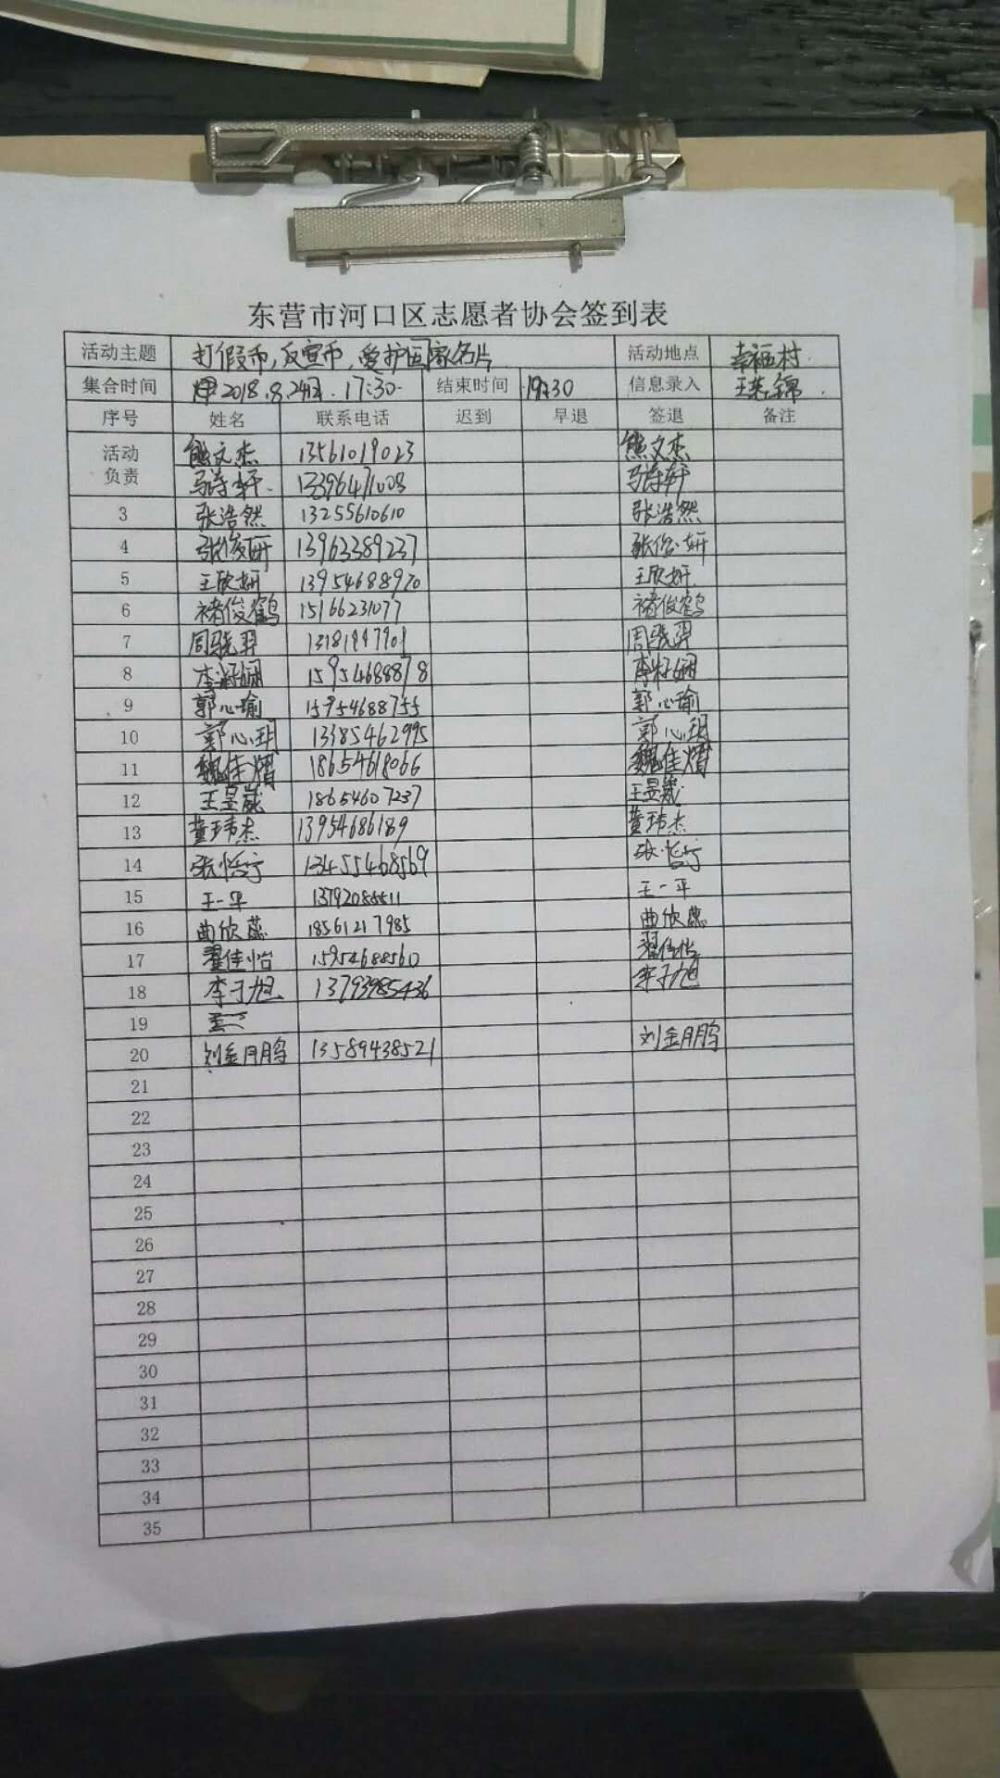 东营市河口区志愿者协会签到表
活动主题 打假币,反宣币,爱护国家名片 活动地点 幸福村
集合时间 2018.8.24日.17:30 结束时间 19:30 信息录入
序号 姓名 联系电话 迟到 早退 签退 备注
活动负责 熊文杰 13561019023 熊文杰
马诗轩 13396471008 马诗轩
3 张浩然 13255610610 张浩然
4 张俊妍 13963389237 张俊妍
5 王欣妍 13954688970 王欣妍
6 褚俊鹤 15166231077 褚俊鹤
7 周骁羿 13181997901 周骁羿
8 李籽娴 15954688878 李籽娴
9 郭心瑜 15954688755 郭心瑜
10 郭心玥 13385462995 郭心玥
11 魏佳熠 18654618066 魏佳熠
12 王昱崴 18654607237 王昱崴
13 董玮杰 13954686189 董玮杰
14 张恺宁 13455468569 张恺宁
15 王一平 王一平
16 曲欣蕊 18561217985 曲欣蕊
17 翟佳怡 15954688560 翟佳怡
18 李子旭 13793985436 李子旭
19
20 刘金鹏 13589438521 刘金鹏
21
22
23
24
25
26
27
28
29
30
31
32
33
34
35